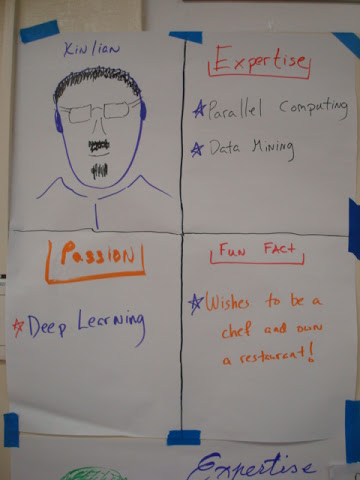 Xinlian
Expertise
Parallel Computing
Data Mining
Passion
Deep Learning
Fun Fact
Wishes to be a
chef and own
a restaurant!
Expertise